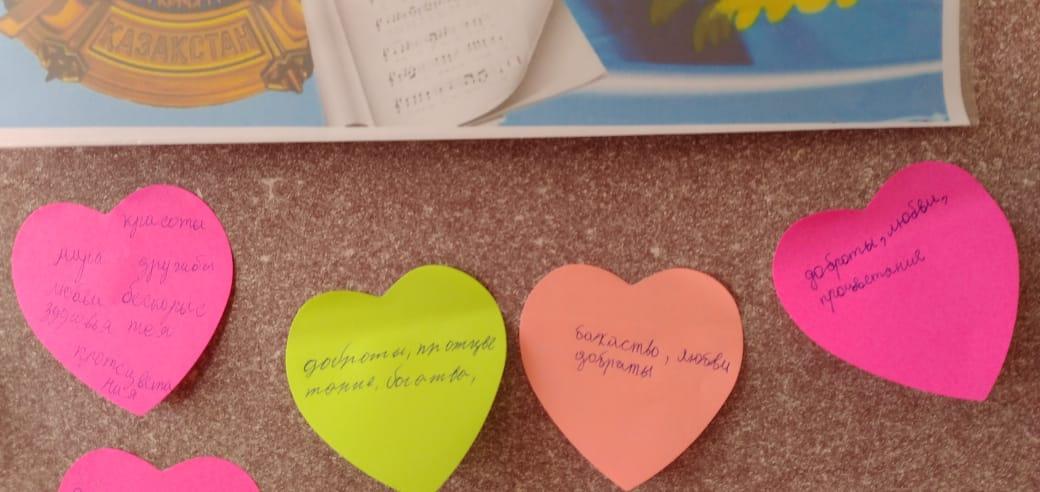 ҚАЗАҚСТАН
красоты
мира дружбы
любви бескорыс
здоровья тея
кротсцвета
ния
доброты, протцве
тание, богатва,
бахаство, любви
добраты
доброты, любви,
процветания